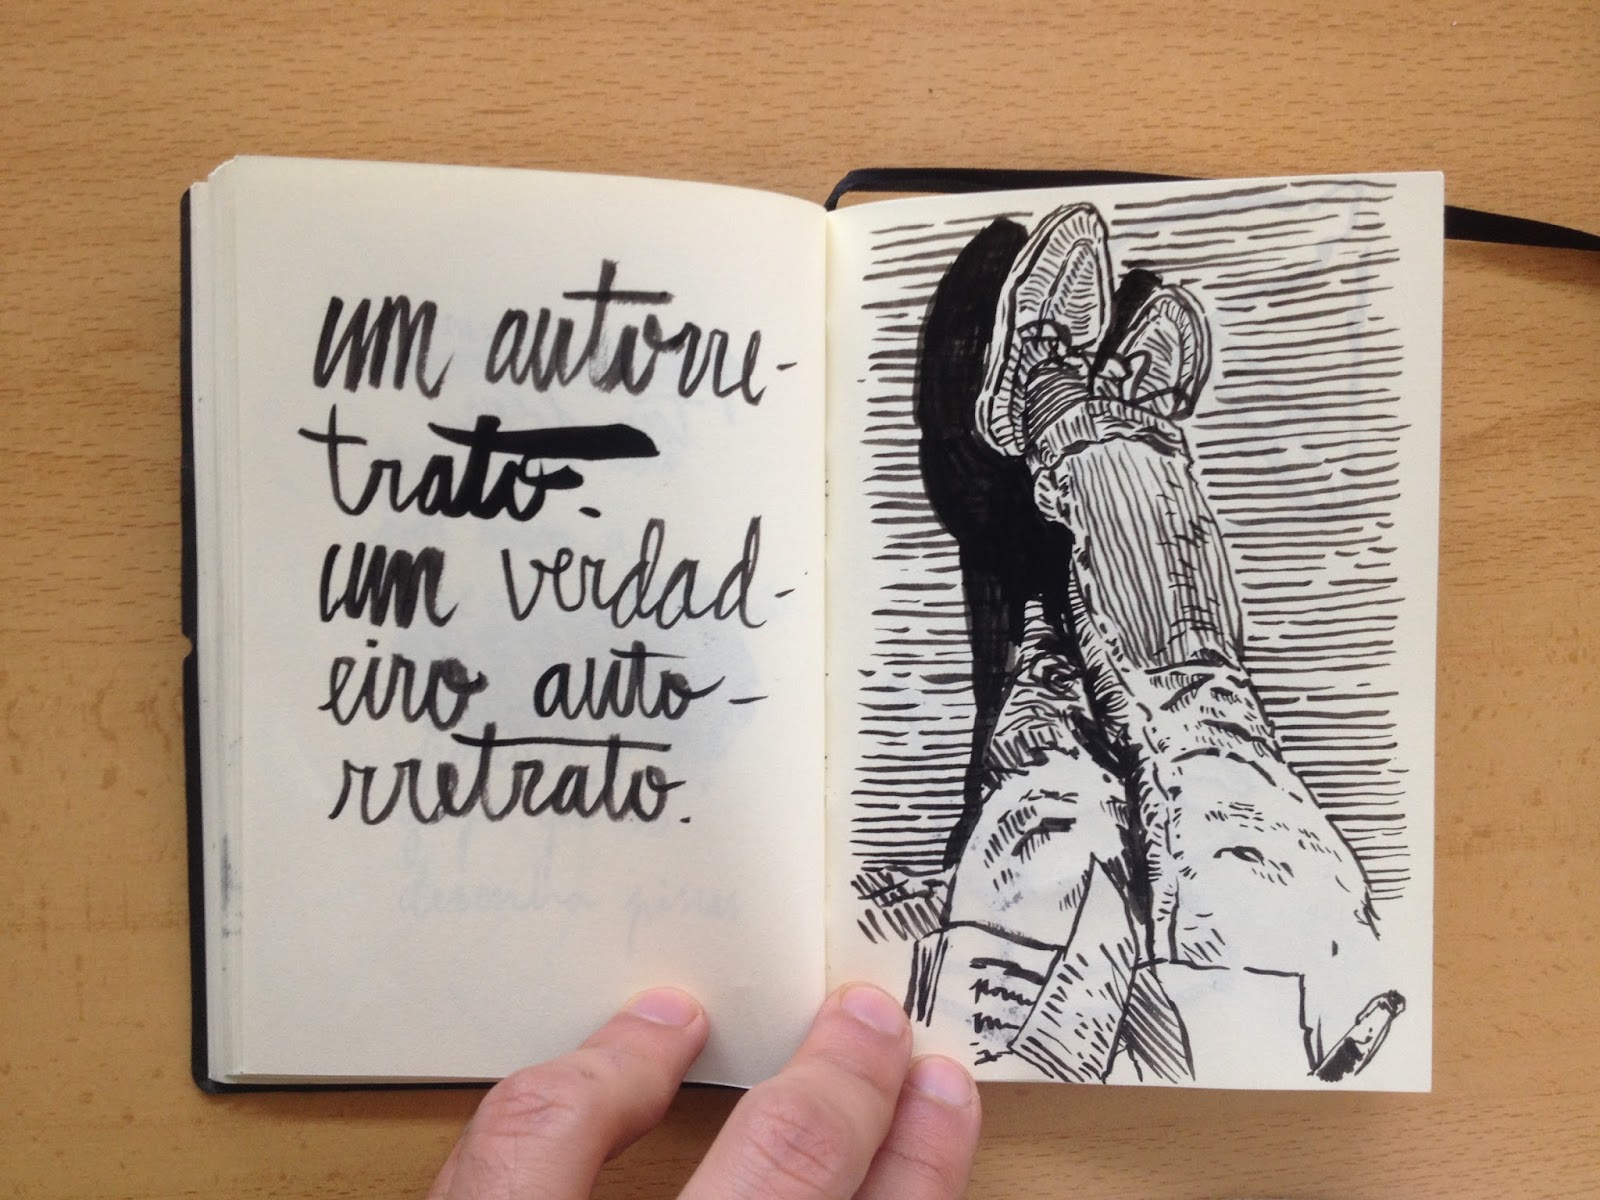 um autorre-
trato.
um verdad-
eiro auto-
rretrato.